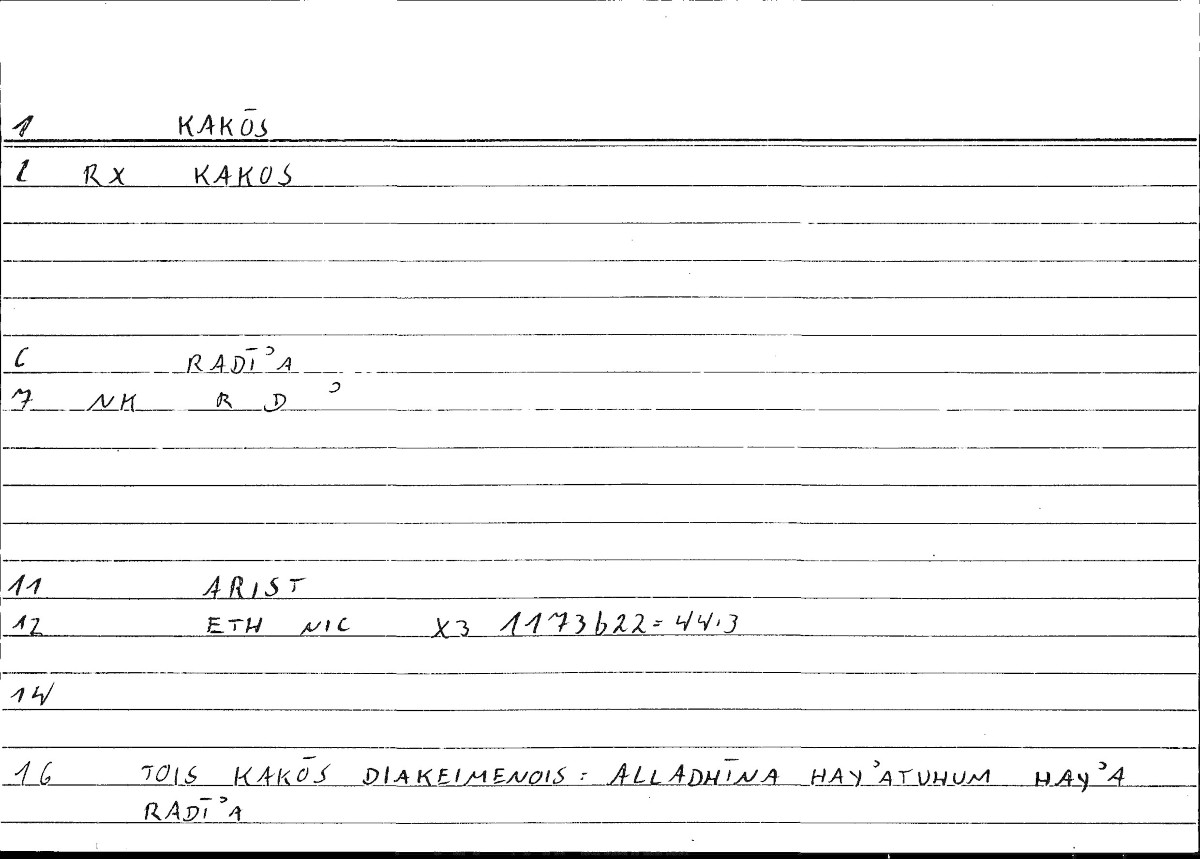 1 KAKŌS
2 RX KAKOS
6 RADĪʾA
7 NK R D ʾ
11 ARIST
12 ETH NIC X3 1173b22=44.3
14
16 TOIS KAKŌS DIAKEIMENOIS: ALLADHĪNA HAYʾATUHUM HAYʾA
RADĪʾA